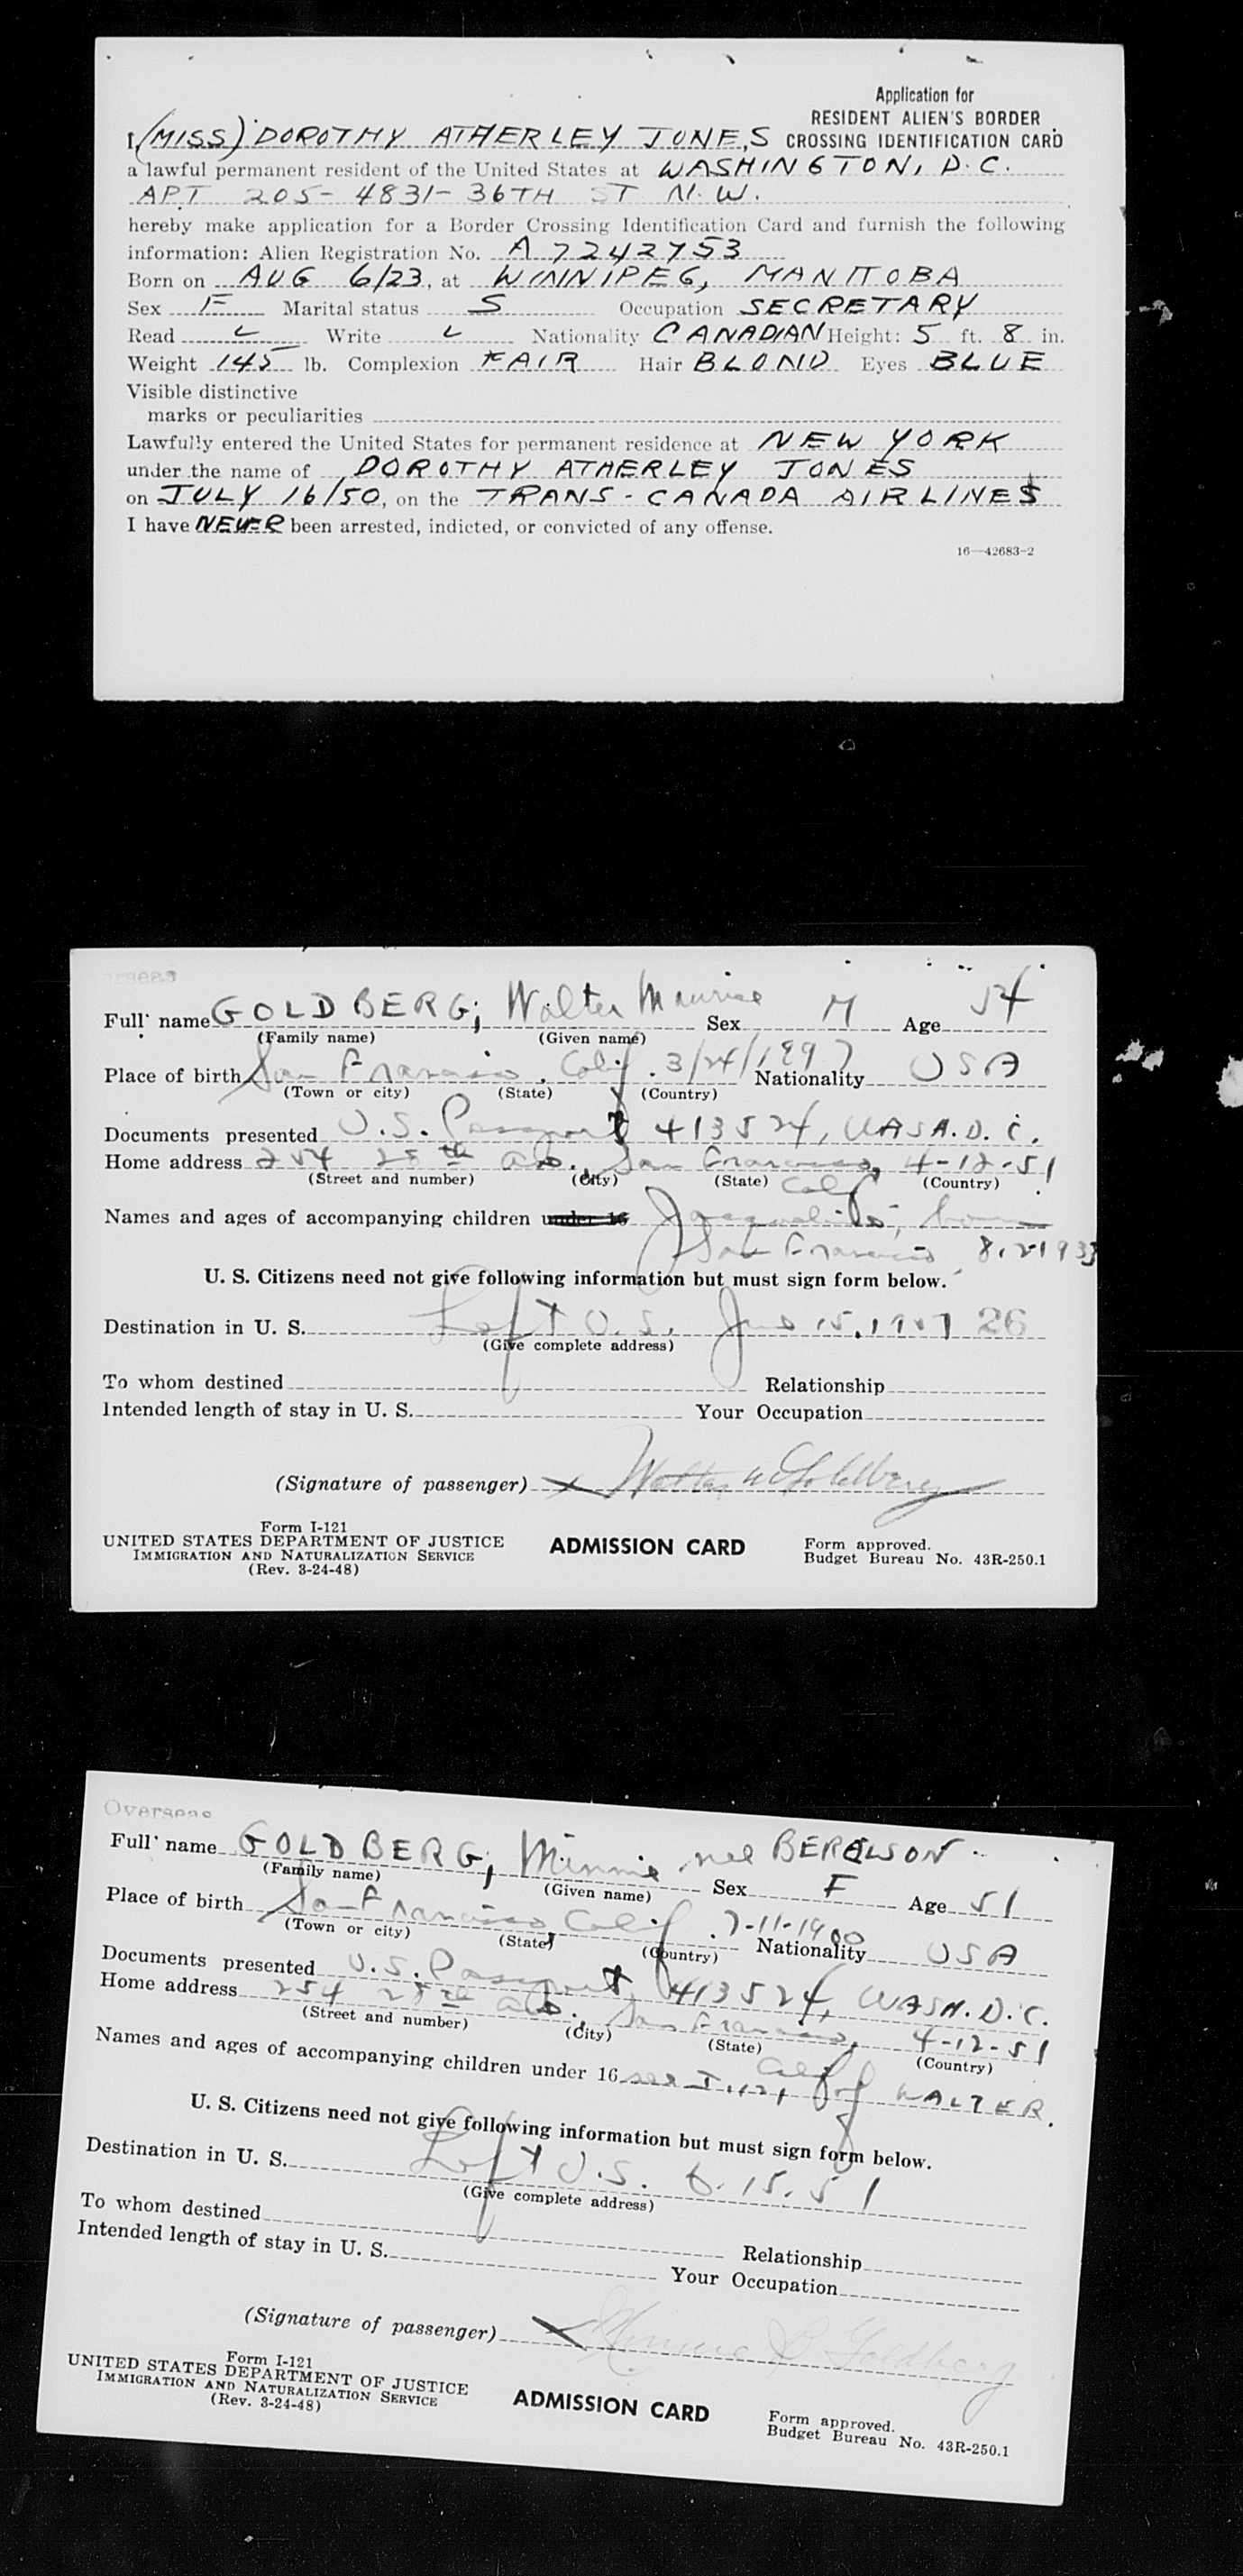 Application for
RESIDENT ALIEN'S BORDER
I, (MISS) DOROTHY ATHERLEY JONES CROSSING IDENTIFICATION CARD
a lawful permanent resident of the United States at WASHINGTON, D.C.
APT 205- 4831- 36TH ST N.W.
hereby make application for a Border Crossing Identification Card and furnish the following
information: Alien Registration No. A 7242753
Born on AUG 6/23, at WINNIPEG, MANITOBA
Sex F Marital status S Occupation SECRETARY
Read Write Nationality CANADIAN Height: 5 ft. 8 in.
Weight 145 lb. Complexion FAIR Hair BLOND Eyes BLUE
Visible distinctive
marks or peculiarities
Lawfully entered the United States for permanent residence at NEW YORK
under the name of DOROTHY ATHERLEY JONES
on JULY 16/50, on the TRANS-CANADA AIRLINES
I have NEVER been arrested, indicted, or convicted of any offense.
16—42683-2
Full name GOLDBERG, Walter Maurice Sex M Age 54
(Family name) (Given name)
Place of birth San Francisco, Calif. 3/24/1897 Nationality USA
(Town or city) (State) (Country)
Documents presented U.S. Passport 413524, WASH. D.C.
Home address 254 28th ave., San Francisco, 4-12-51
(Street and number) (City) (State) Calif (Country)
Names and ages of accompanying children under 16 born
San Francisco 8.2.1933
U. S. Citizens need not give following information but must sign form below.
Destination in U. S. Left U.S. June 15, 26
(Give complete address)
To whom destined Relationship
Intended length of stay in U. S. Your Occupation
(Signature of passenger) X Walter M Goldberg
Form I-121
UNITED STATES DEPARTMENT OF JUSTICE
IMMIGRATION AND NATURALIZATION SERVICE
(Rev. 3-24-48)
ADMISSION CARD
Form approved.
Budget Bureau No. 43R-250.1
Overseas
Full name GOLDBERG, Minnie nee BERELSON
(Family name) (Given name) Sex F Age 51
Place of birth San Francisco Calif. 7-11-1900 Nationality USA
(Town or city) (State) (Country)
Documents presented U.S. Passport 413524, WASH. D.C.
Home address 254 28th ave., San Francisco, 4-12-51
(Street and number) (City) (State) Calif (Country)
Names and ages of accompanying children under 16 see I.121 of WALTER.
U. S. Citizens need not give following information but must sign form below.
Destination in U. S. Left U.S. 6.15.51
(Give complete address)
To whom destined Relationship
Intended length of stay in U. S. Your Occupation
(Signature of passenger) X Minnie B Goldberg
Form I-121
UNITED STATES DEPARTMENT OF JUSTICE
IMMIGRATION AND NATURALIZATION SERVICE
(Rev. 3-24-48)
ADMISSION CARD
Form approved.
Budget Bureau No. 43R-250.1